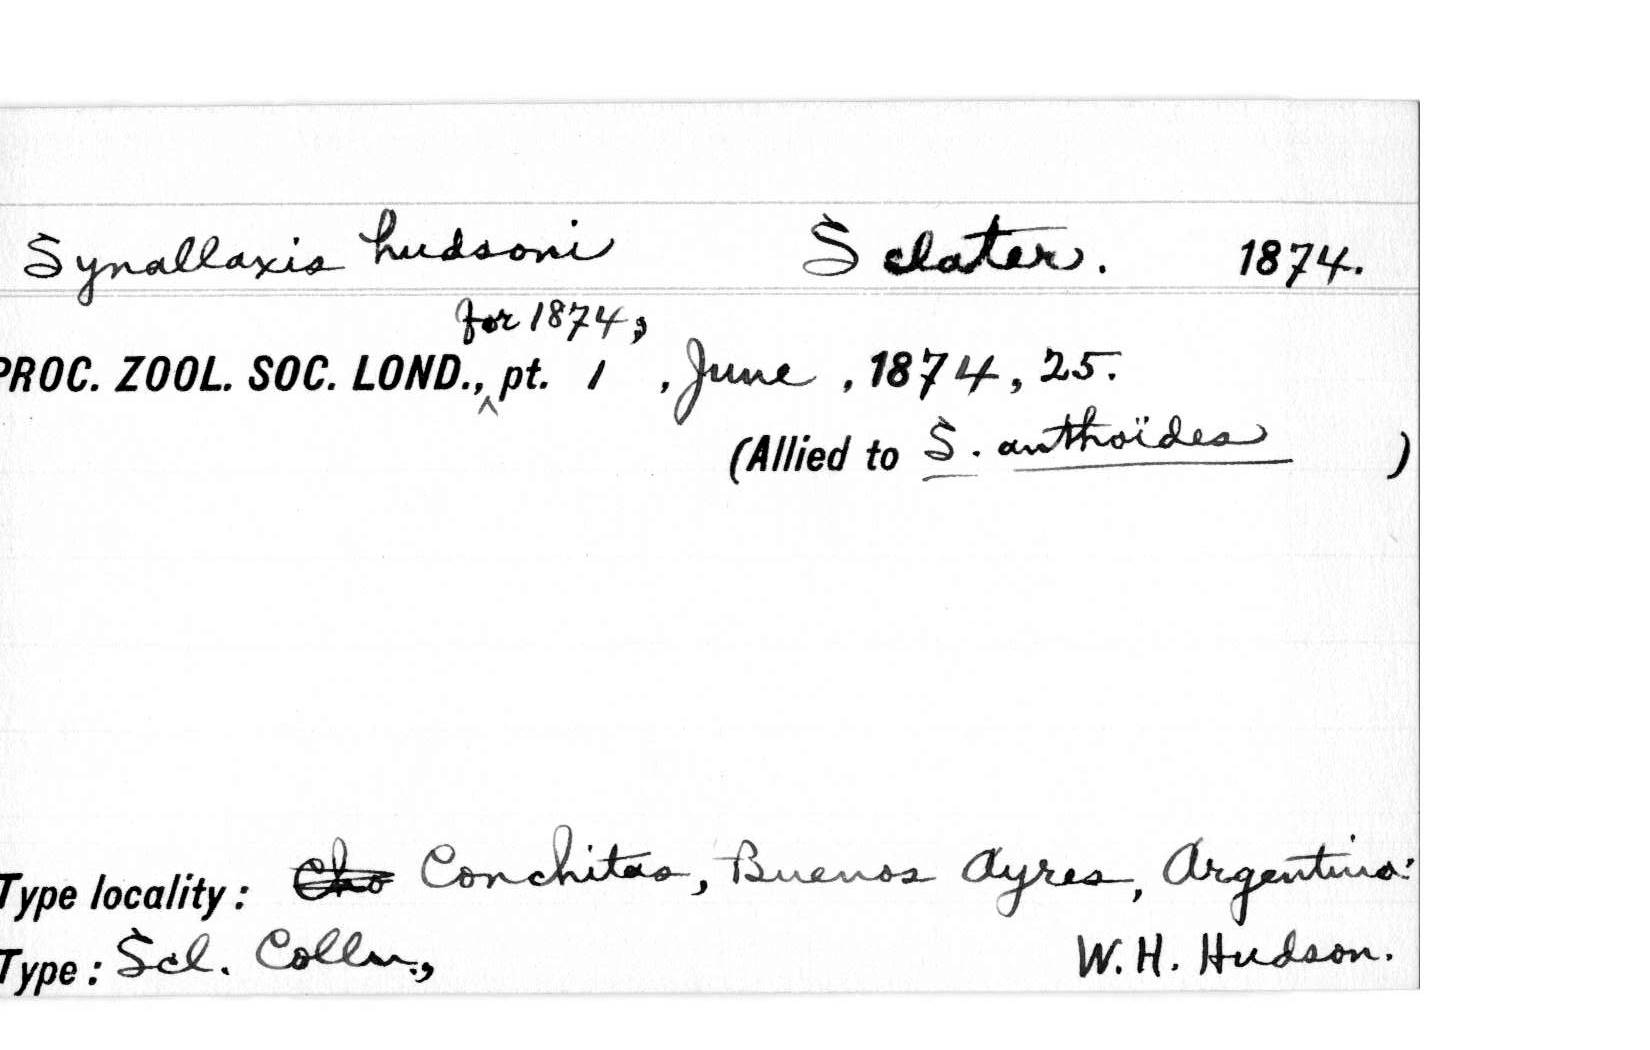 Synallaxis hudsoni Sclater. 1874.
for 1874,
PROC. ZOOL. SOC. LOND., pt. 1 , June , 1874, 25.
(Allied to S. anthoïdes )
Type locality: Cho Conchitas, Buenos Ayres, Argentina:
Type: Scl. Colln., W. H. Hudson.